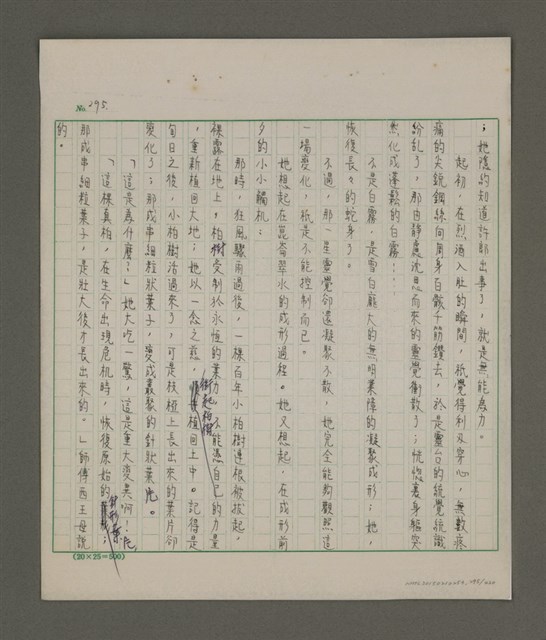 No. 295.
；她隱約知道許郎出事了，就是無能為力。
起初，在烈酒入肚的瞬間，祇覺得利刃穿心，無數疼
痛的尖銳鋼絲向周身百骸千筋鑽去，於是靈台的統覺統識
紛亂了，那由靜慮沈思而來的靈覺衝散了；恍惚裏身軀突
然化成蓬鬆的白霧……
不是白霧，是雪白龐大的無明業障的凝聚成形；她，
恢復長長的蛇身了。
不過，那一星靈覺卻還凝聚不散，她完全能夠觀照這
一場變化，祇是不能控制而已。
她想起在崑崙翠水的成形過程。她又想起，在成形前
夕的小小觸机：
那時，狂風驟雨過後，一棵百年小柏樹連根被拔起，
裸露在地上。柏樹受制於永恆的業力，不能憑自己的力量
，重新植回大地；她以一念之慈，銜起柏樹植回土中。記得是
旬日之後，小柏樹活過來了，可是枝椏上長出來的葉片卻
變化了；那成串細粒狀葉子，變成叢聚的針狀葉
「這是為什麼？」她大吃一驚，這是重大變異啊！
「這樣真柏，在生命出現危机時，恢復原始的
那成串細粒葉子，是壯大後才長出來的。」師傅西王母說
的。
(20×25=500)